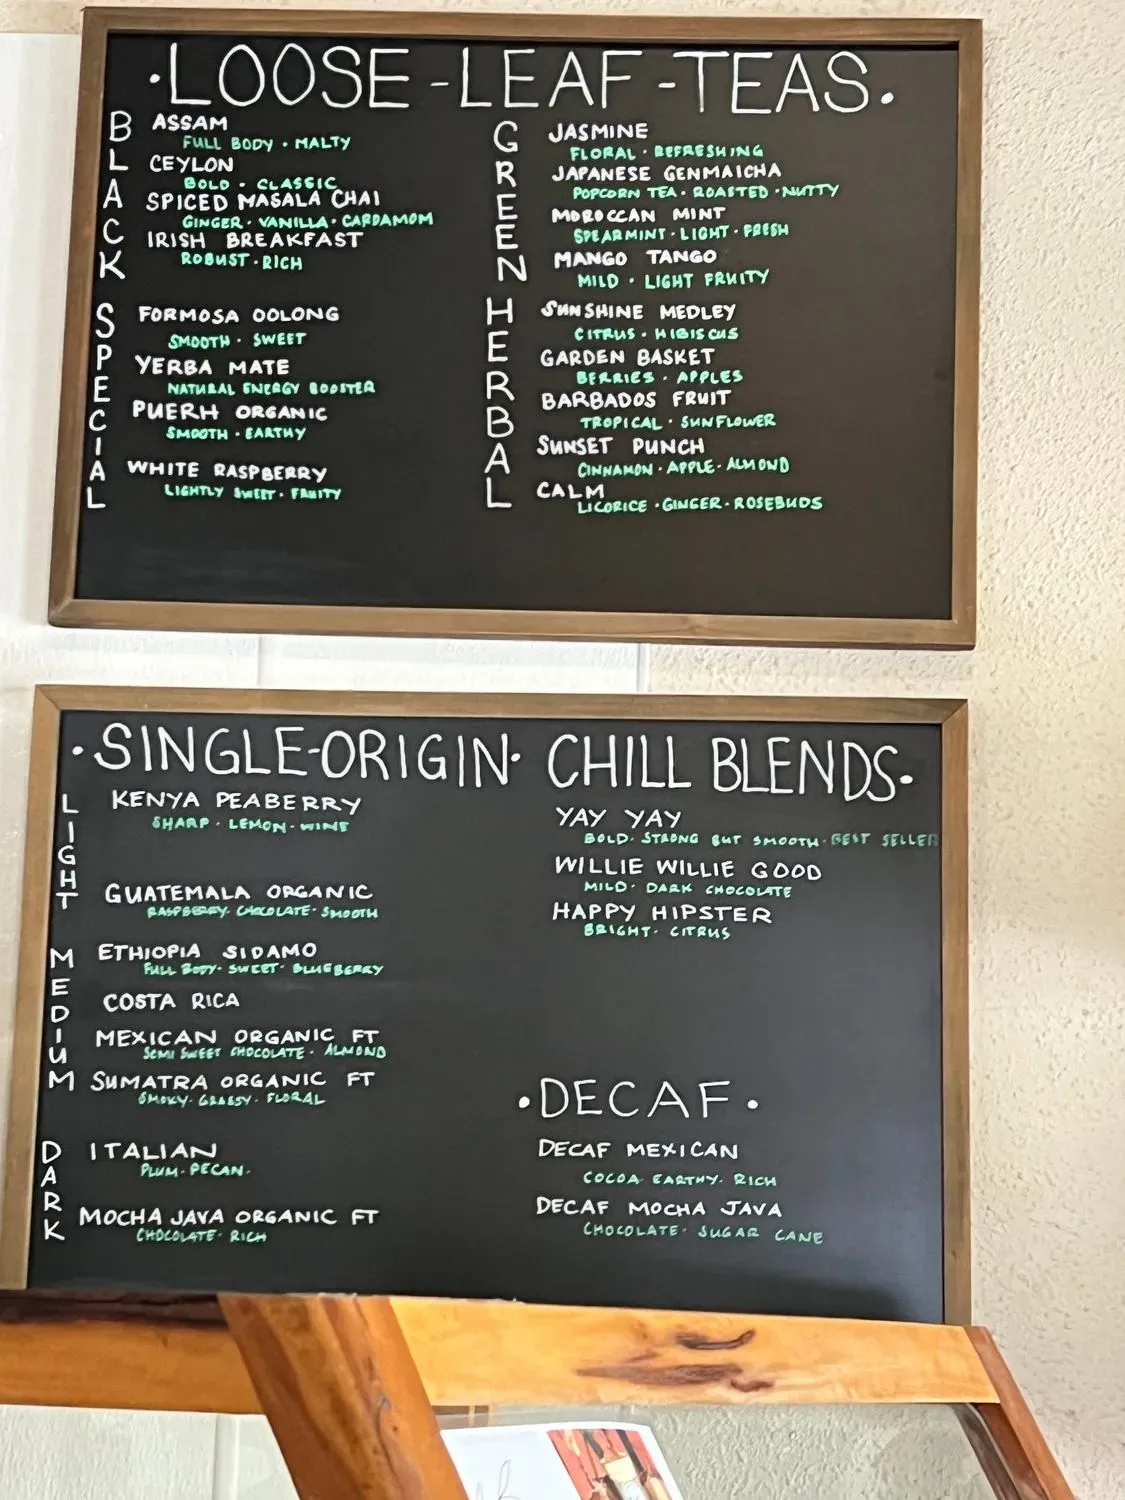 ·LOOSE-LEAF-TEAS·
BLACK
ASSAM
FULL BODY · MALTY
CEYLON
BOLD · CLASSIC
SPICED MASALA CHAI
GINGER · VANILLA · CARDAMOM
IRISH BREAKFAST
ROBUST · RICH
SPECIAL
FORMOSA OOLONG
SMOOTH · SWEET
YERBA MATE
NATURAL ENERGY BOOSTER
PUERH ORGANIC
SMOOTH · EARTHY
WHITE RASPBERRY
LIGHTLY SWEET · FRUITY
GREEN
JASMINE
FLORAL · REFRESHING
JAPANESE GENMAICHA
POPCORN TEA · ROASTED · NUTTY
MOROCCAN MINT
SPEARMINT · LIGHT · FRESH
MANGO TANGO
MILD · LIGHT FRUITY
HERBAL
SUNSHINE MEDLEY
CITRUS · HIBISCUS
GARDEN BASKET
BERRIES · APPLES
BARBADOS FRUIT
TROPICAL · SUNFLOWER
SUNSET PUNCH
CINNAMON · APPLE · ALMOND
CALM
LICORICE · GINGER · ROSEBUDS
·SINGLE-ORIGIN·
LIGHT
KENYA PEABERRY
SHARP · LEMON · WINE
GUATEMALA ORGANIC
RASPBERRY · CHOCOLATE · SMOOTH
MEDIUM
ETHIOPIA SIDAMO
FULL BODY · SWEET · BLUEBERRY
COSTA RICA
MEXICAN ORGANIC FT
SEMI SWEET CHOCOLATE · ALMOND
SUMATRA ORGANIC FT
SMOKY · GRASSY · FLORAL
DARK
ITALIAN
PLUM · PECAN ·
MOCHA JAVA ORGANIC FT
CHOCOLATE · RICH
CHILL BLENDS·
YAY YAY
BOLD · STRONG BUT SMOOTH · BEST SELLER
WILLIE WILLIE GOOD
MILD · DARK CHOCOLATE
HAPPY HIPSTER
BRIGHT · CITRUS
·DECAF·
DECAF MEXICAN
COCOA EARTHY · RICH
DECAF MOCHA JAVA
CHOCOLATE · SUGAR CANE